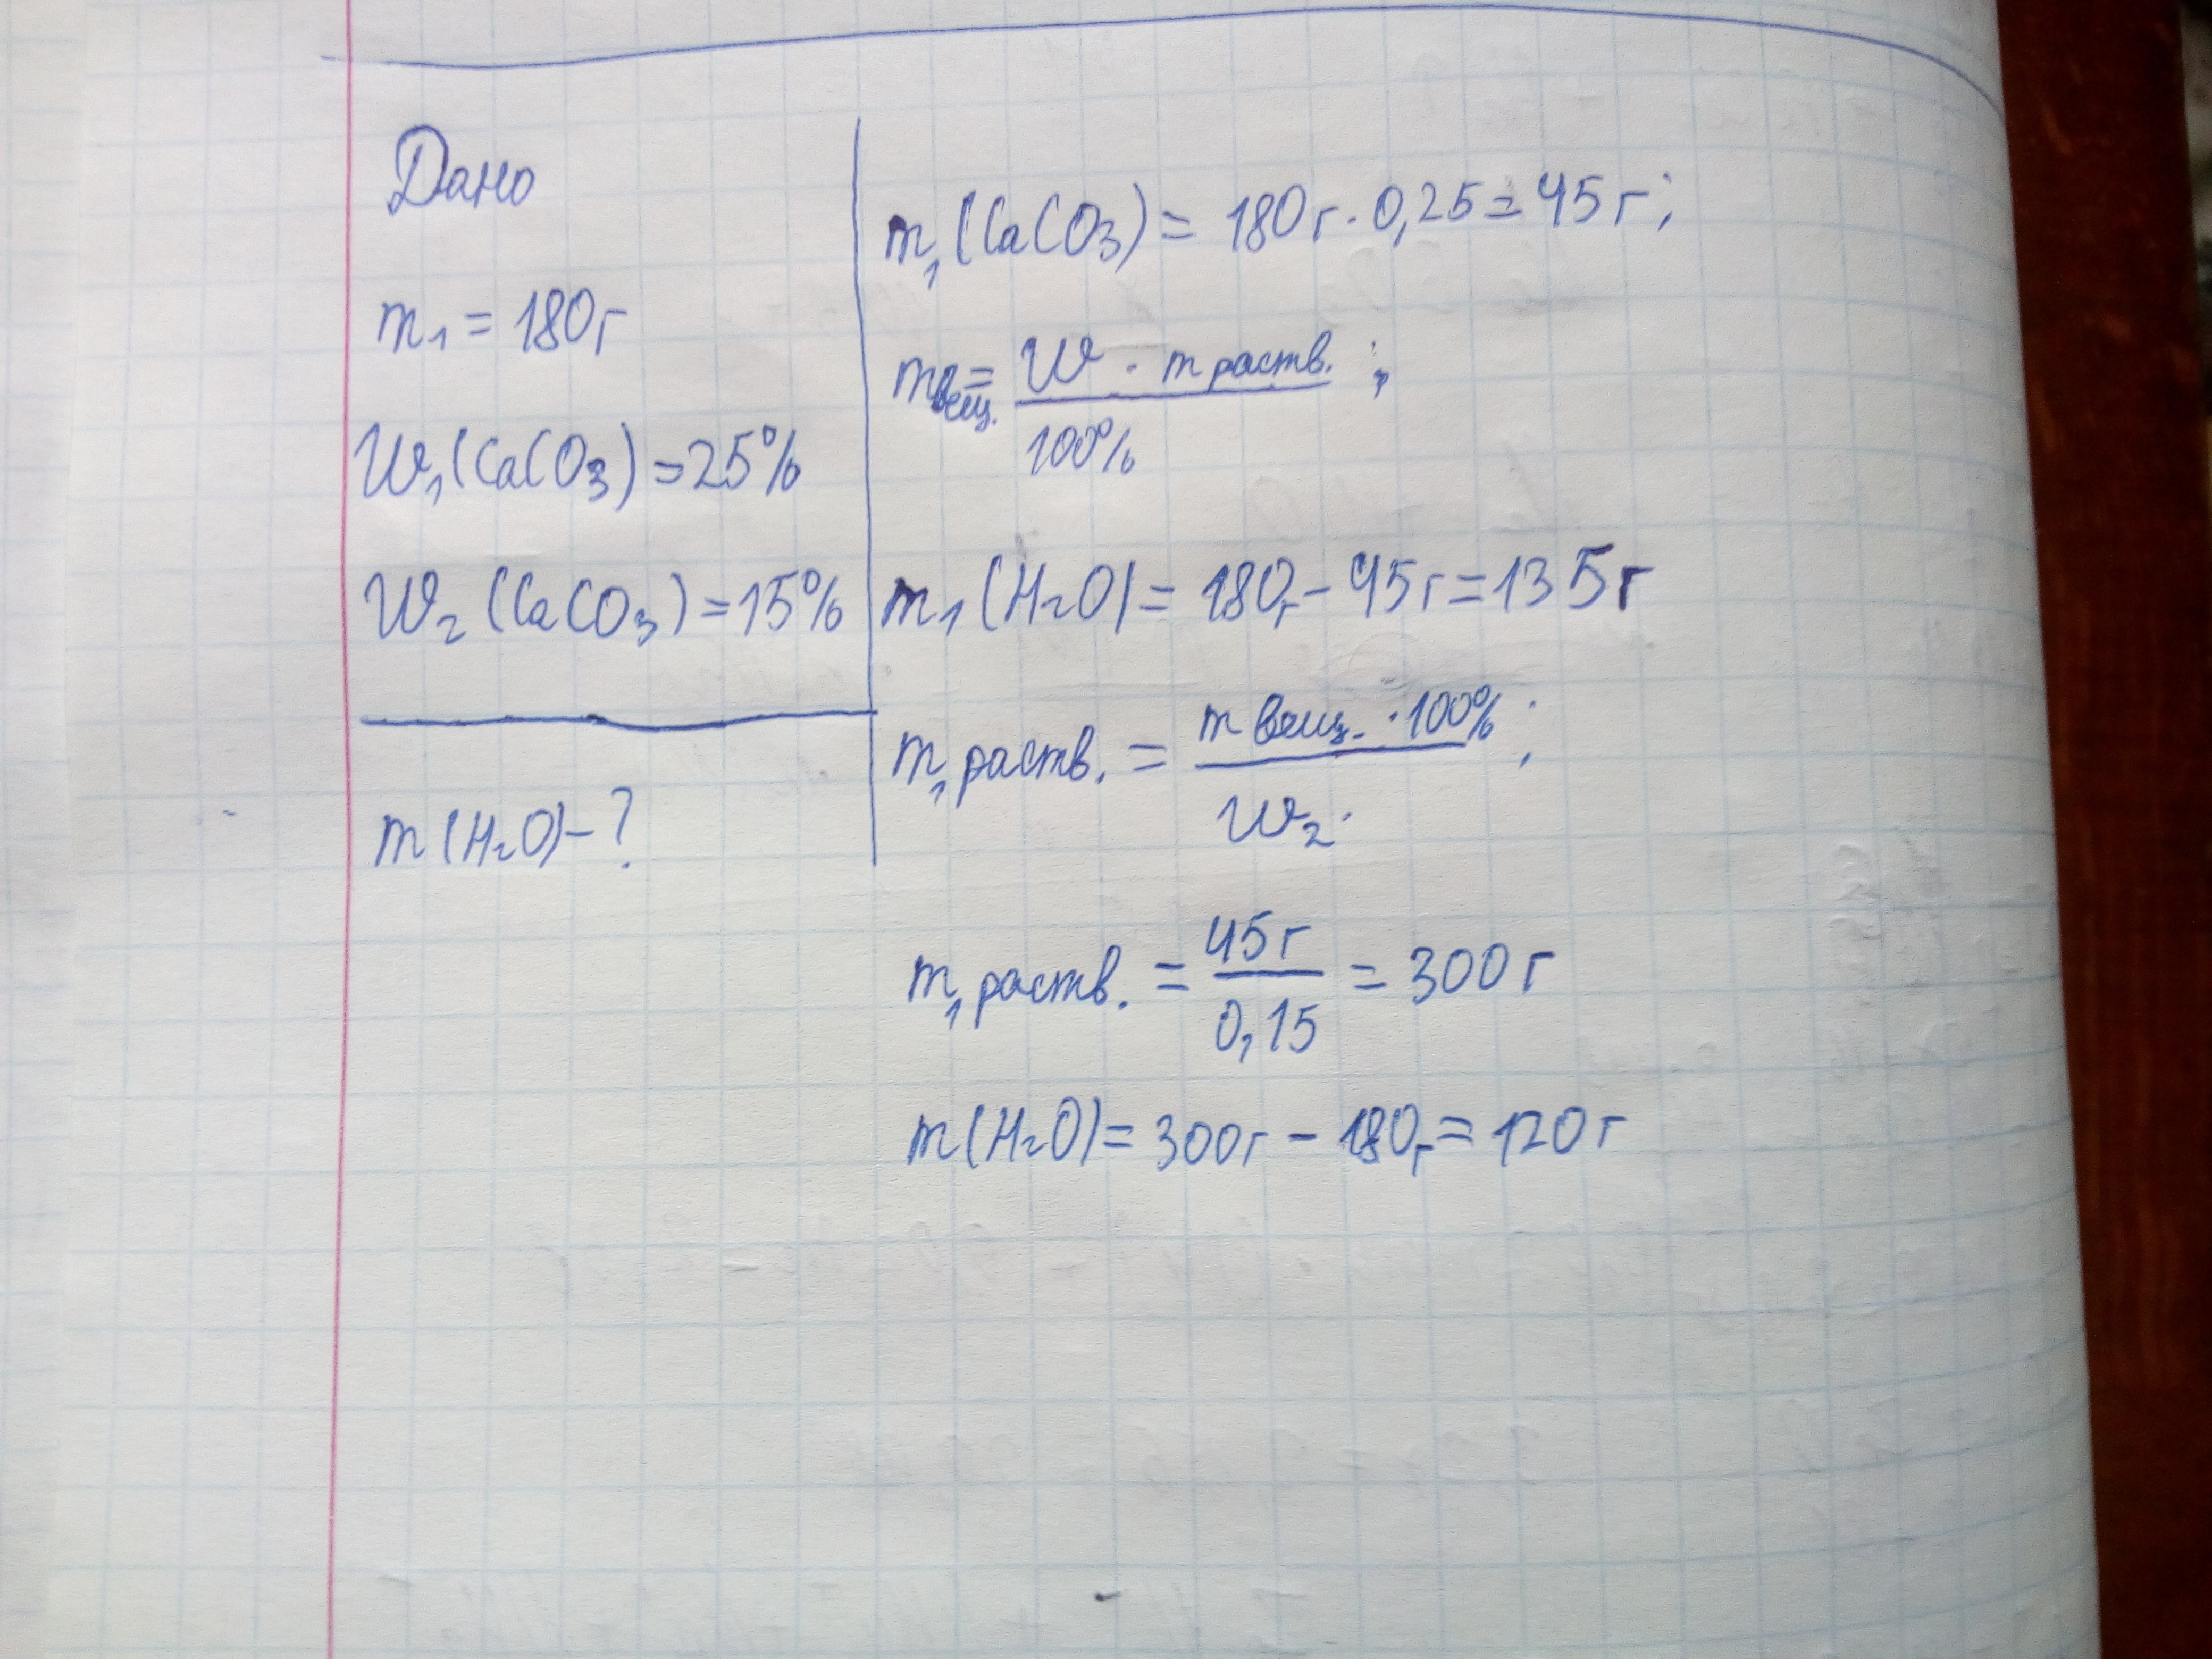 Дано
m₁ = 180г
W₁(CaCO₃) = 25%
W₂(CaCO₃) = 15%
m(H₂O) - ?
m₁(CaCO₃) = 180г · 0,25 = 45г;
mвещ. = W · m раств. ;
100%
m₁(H₂O) = 180г - 45г = 135г
m₁ раств. = m вещ. · 100% ;
W₂.
m₁ раств. = 45г / 0,15 = 300г
m(H₂O) = 300г - 180г = 120г